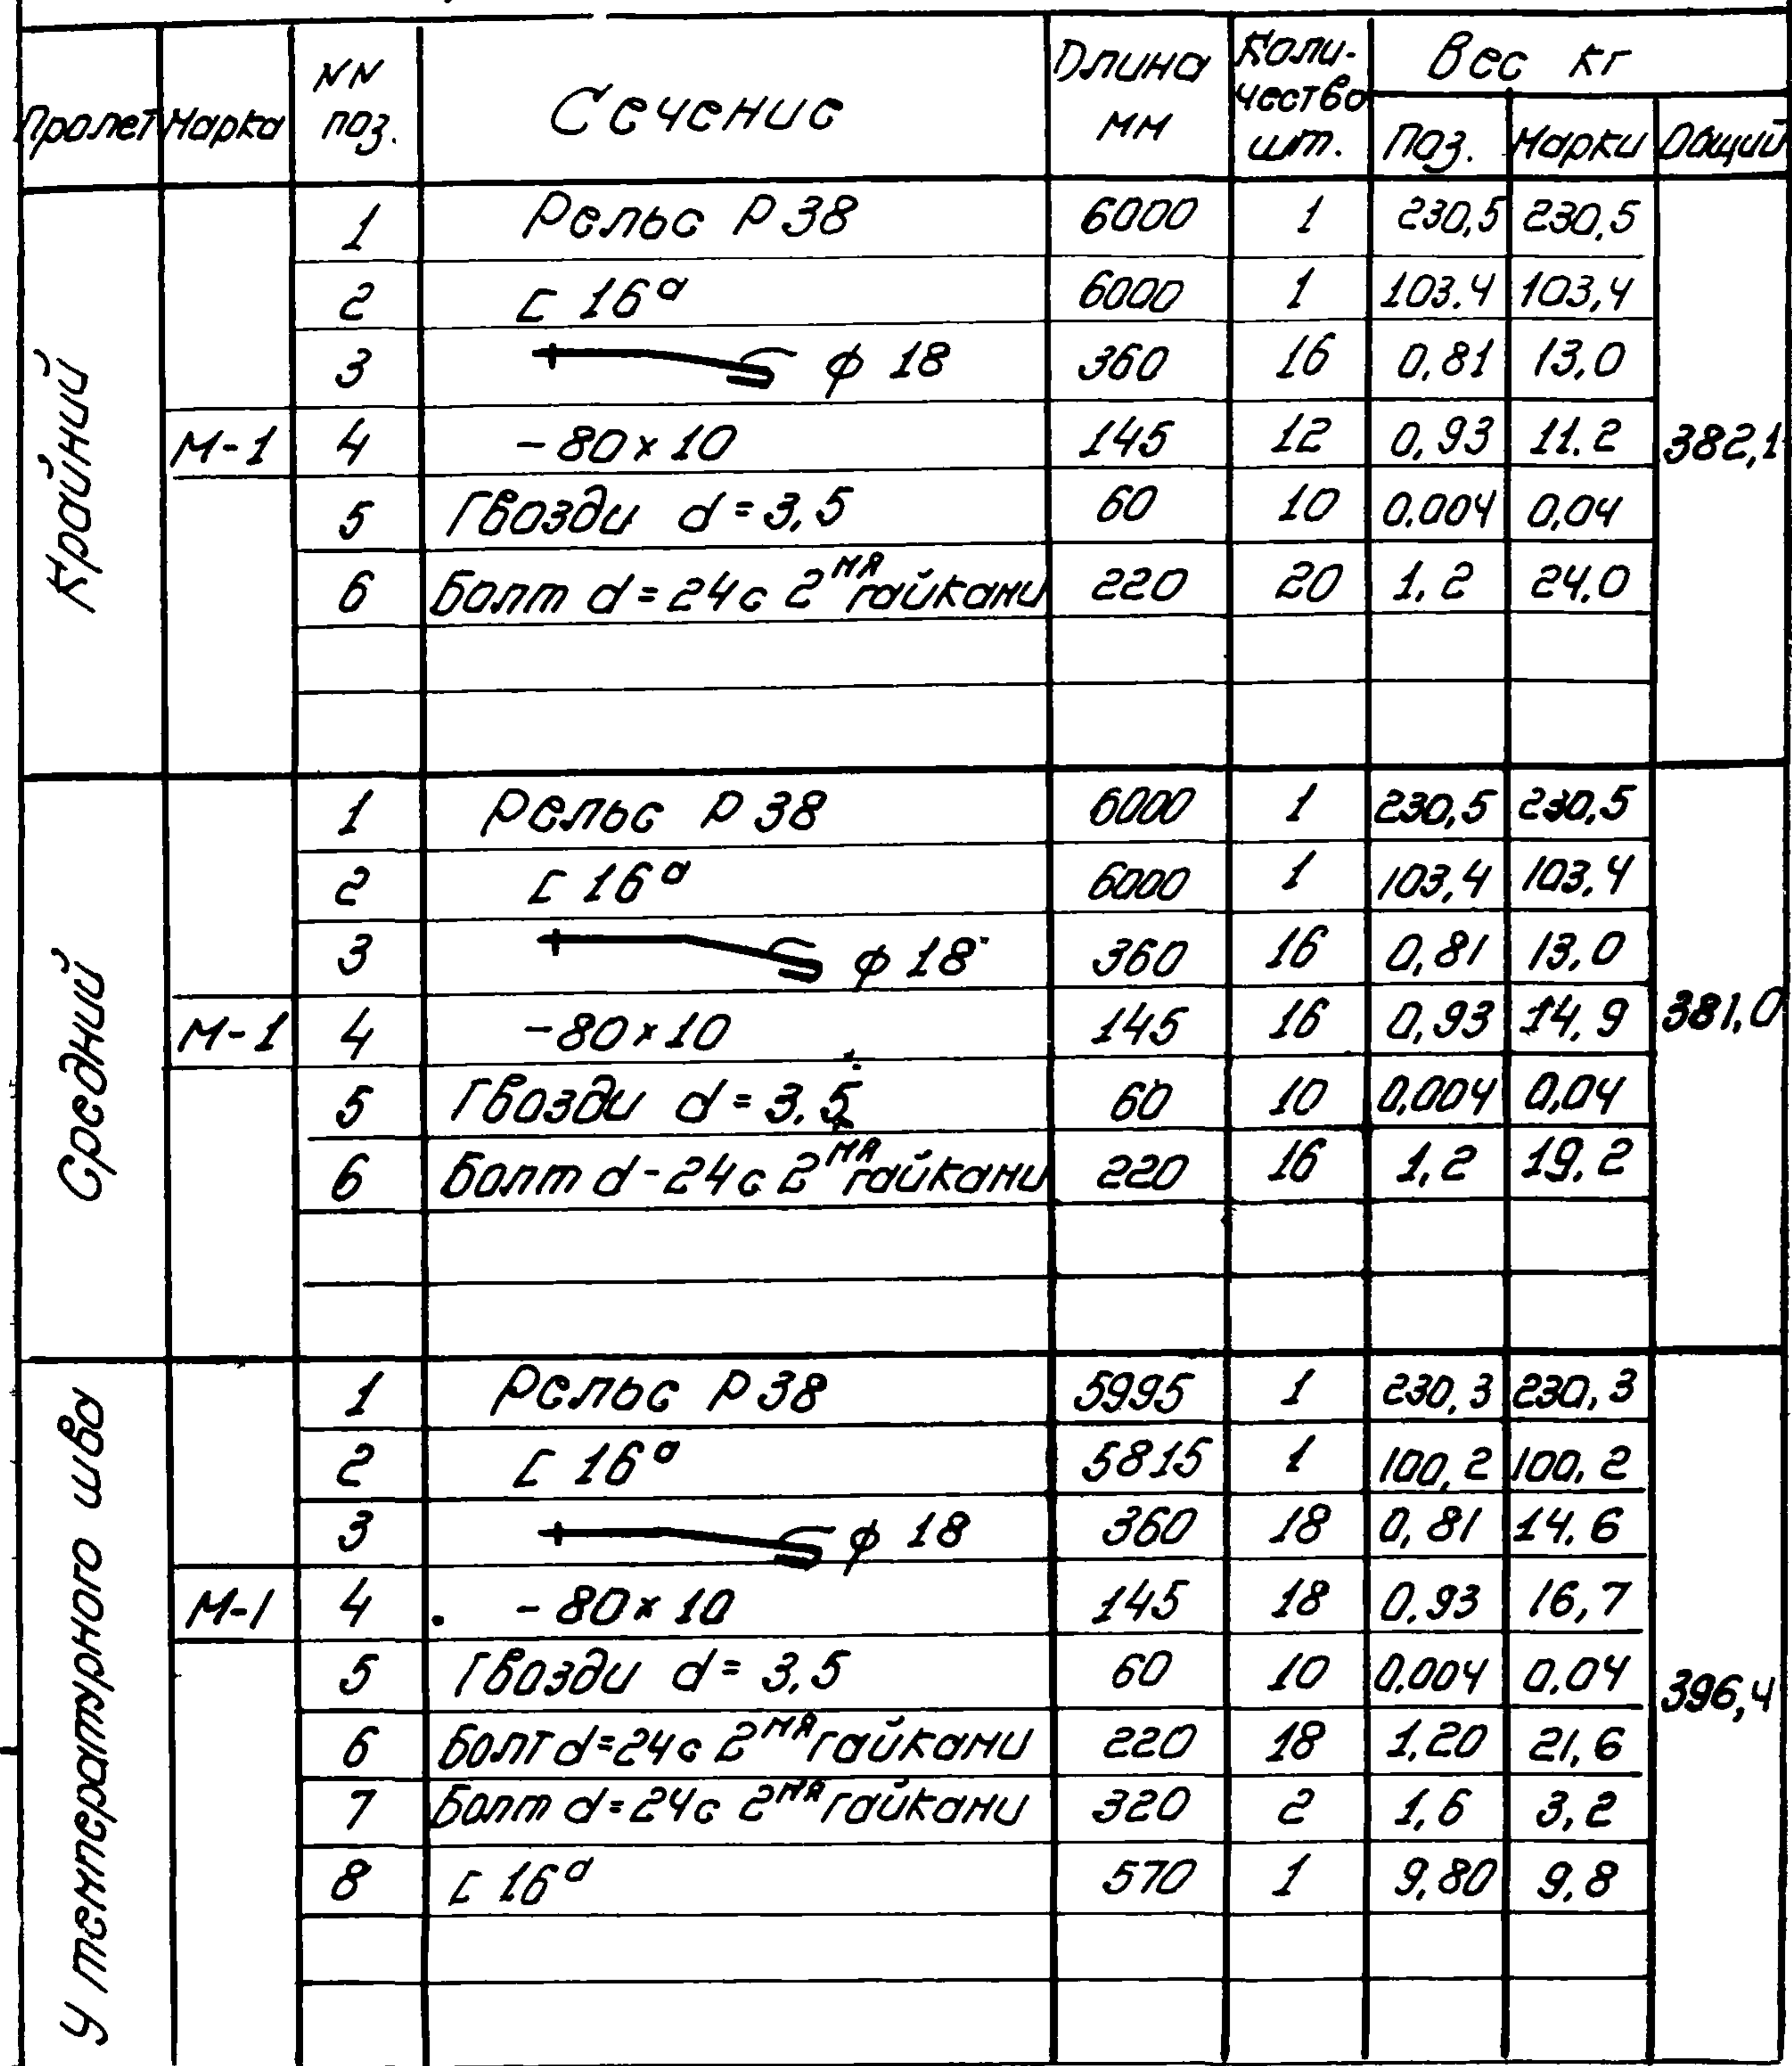 Пролет Марка NN поз. Сечение Длина мм Коли-чество шт. Вес кг Поз. Марки Общий
Крайний М-1 382,1
1 Рельс Р 38 6000 1 230,5 230,5
2 [ 16а 6000 1 103.4 103,4
3 ф 18 360 16 0,81 13,0
4 -80×10 145 12 0,93 11.2
5 Гвозди d=3,5 60 10 0.004 0,04
6 Болт d=24 с 2мя гайками 220 20 1,2 24,0
Средний М-1 381,0
1 Рельс Р 38 6000 1 230,5 230,5
2 [ 16а 6000 1 103,4 103,4
3 ф 18 360 16 0,81 13,0
4 -80×10 145 16 0,93 14,9
5 Гвозди d=3,5 60 10 0,004 0,04
6 Болт d-24 с 2мя гайками 220 16 1,2 19,2
У температурного шва М-1 396,4
1 Рельс Р 38 5995 1 230,3 230,3
2 [ 16а 5815 1 100,2 100,2
3 ф 18 360 18 0,81 14,6
4 -80×10 145 18 0.93 16,7
5 Гвозди d=3,5 60 10 0.004 0,04
6 Болт d=24 с 2мя гайками 220 18 1,20 21,6
7 Болт d=24 с 2мя гайками 320 2 1,6 3,2
8 [ 16а 570 1 9,80 9,8